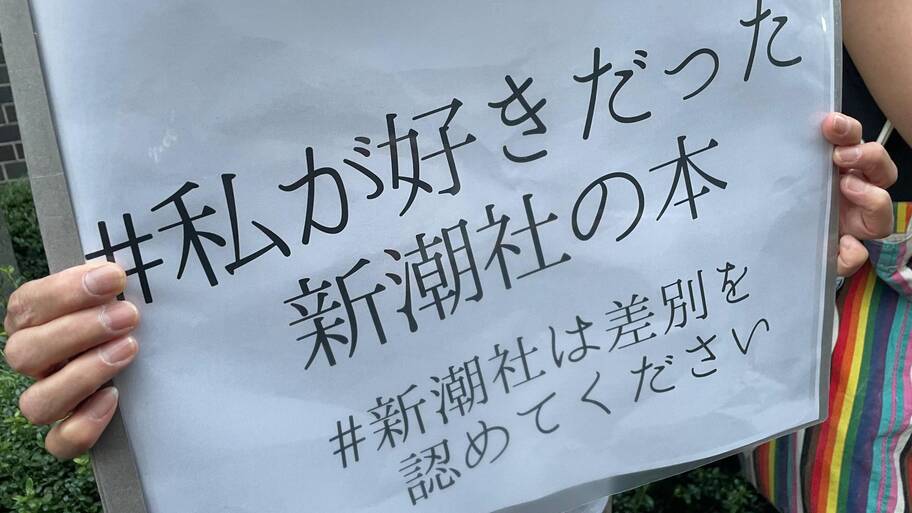 #私が好きだった
新潮社の本
#新潮社は差別を
認めてください